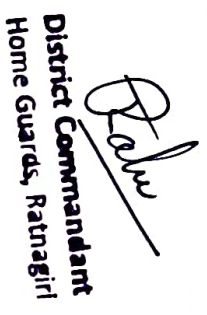 District Commandant
Home Guards, Ratnagiri